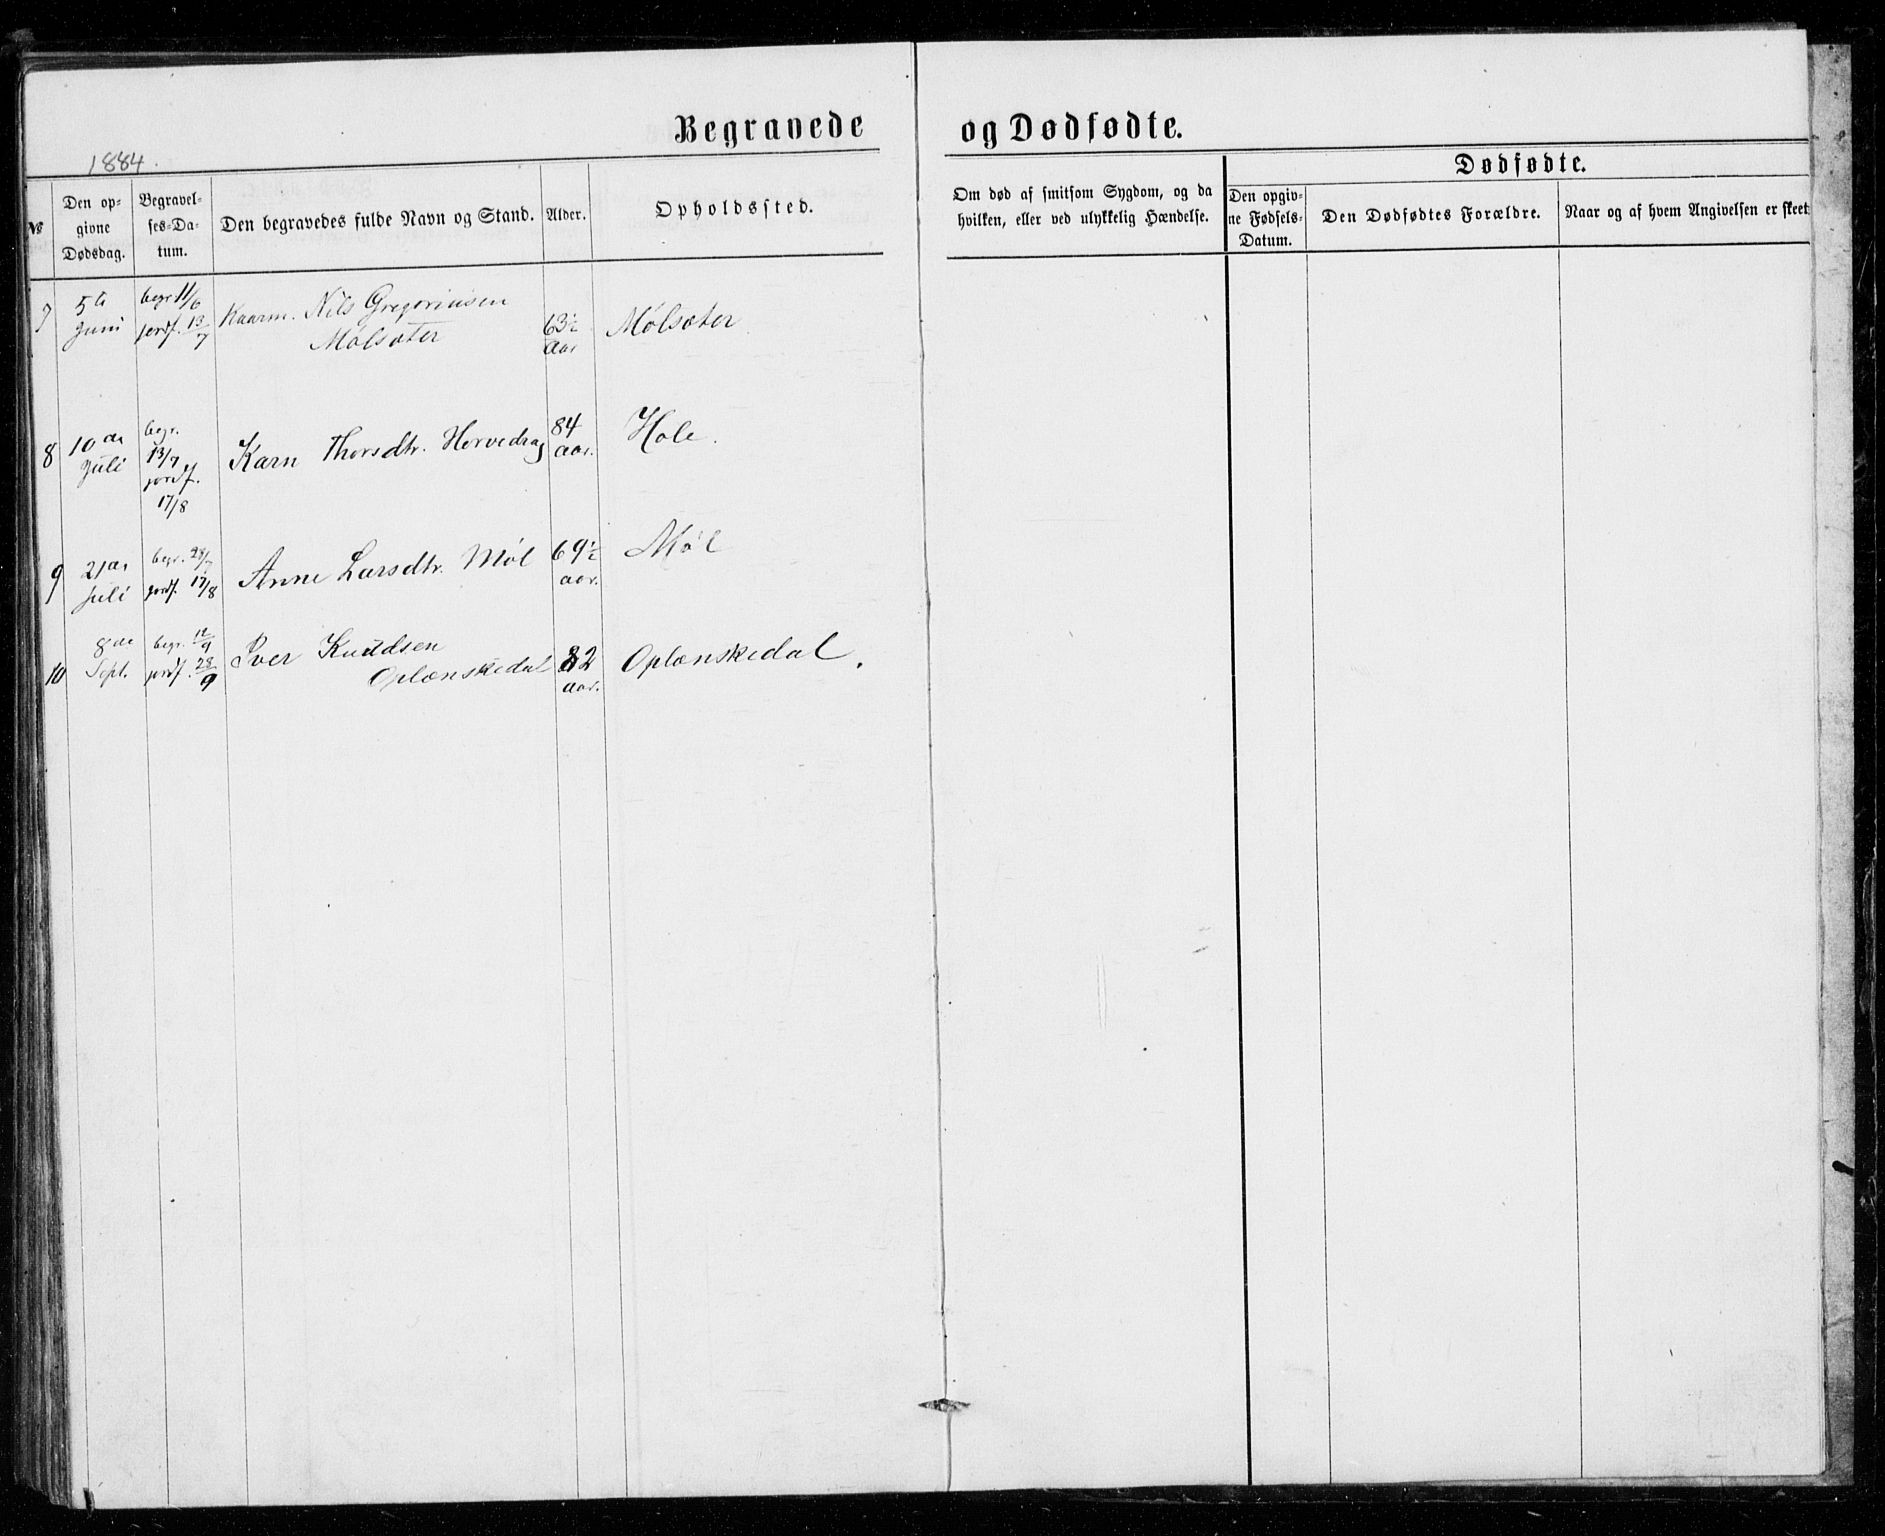 Begravede
og Dødfødte.
1884.
Dødfødte.
№
Den op-
givne
Dødsdag.
Begravel-
ses-Da-
tum.
Den begravedes fulde Navn og Stand.
Alder.
Opholdssted.
Om død af smitsom Sygdom, og da
hvilken, eller ved ulykkelig Hændelse.
Den opgiv-
ne Fødsels-
Datum.
Den Dødfødtes Forældre.
Naar og af hvem Angivelsen er skeet
7
5te
Juni
begr 11/6
jordf. 13/7
Kaarm. Nils Gregoriusen
Mølsæter
63½
aar
Mølsæter
8
10de
Juli
begr.
13/7
jordf.
17/8
Kari Thorsdtr. Hervedrag
84
aar.
Hole.
9
21de
Juli
begr. 28/7
jordf. 17/8
Anne Larsdtr. Møl
69½
aar.
Møl
10
8de
Sept.
begr. 12/9
jordf. 28/9
Iver Knudsen
Oplænskedal
82
aar.
Oplænskedal.